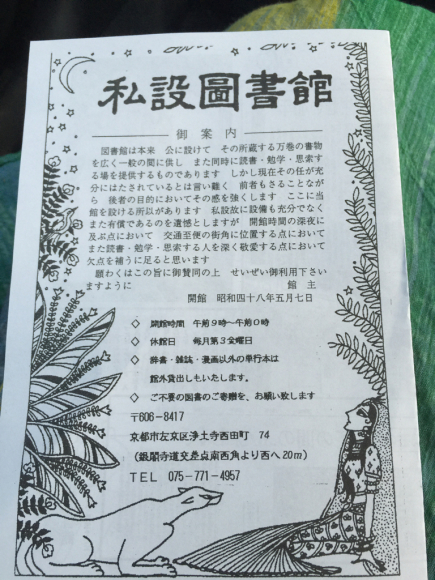 私設圖書館
御案内
図書館は本来 公に設けて その所蔵する万巻の書物
を広く一般の間に供し また同時に読書・勉学・思索す
る場を提供するものであります しかし現在その任が充
分にはたされているとは言い難く 前者もさることなが
ら 後者の目的においてその感を強くします ここに当
館を設ける所以があります 私設故に設備も充分でなく
また有償であるのを遺憾としますが 開館時間の深夜に
及ぶ点において 交通至便の街角に位置する点において
また読書・勉学・思索する人を深く敬愛する点において
欠点を補うに足ると思います
願わくはこの旨に御賛同の上 せいぜい御利用下さい
ますように 館主
開館 昭和四十八年五月七日
◇ 開館時間 午前9時〜午前0時
◇ 休館日 毎月第3金曜日
◇ 辞書・雑誌・漫画以外の単行本は
館外貸出しもいたします。
◇ ご不要の図書のご寄贈を、お願い致します
〒606-8417
京都市左京区浄土寺西田町 74
(銀閣寺道交差点南西角より西へ20m)
TEL 075-771-4957